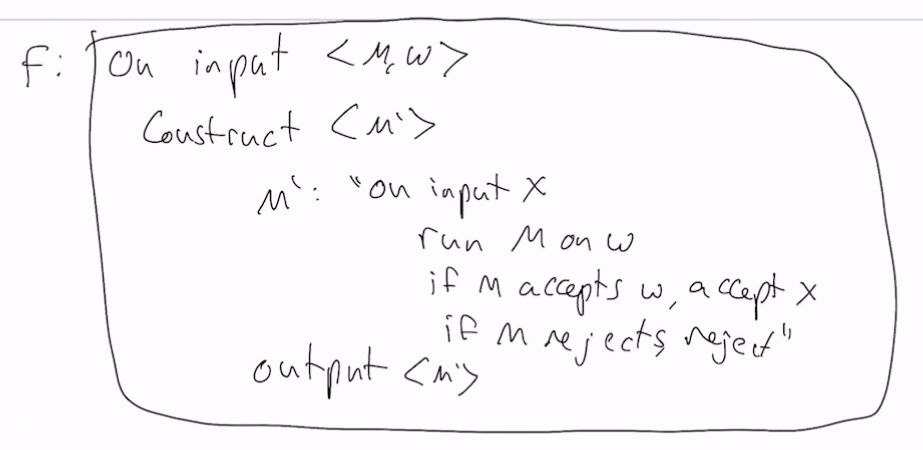 f: On input <M, w>
Construct <M'>
M': "on input x
run M on w
if M accepts w, accept x
if M rejects, reject"
output <M'>